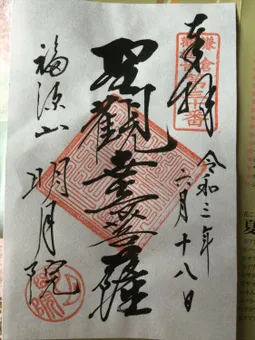 奉拝
鎌倉第三十番
令和三年
六月十八日
聖観世音菩薩
福源山
明月院